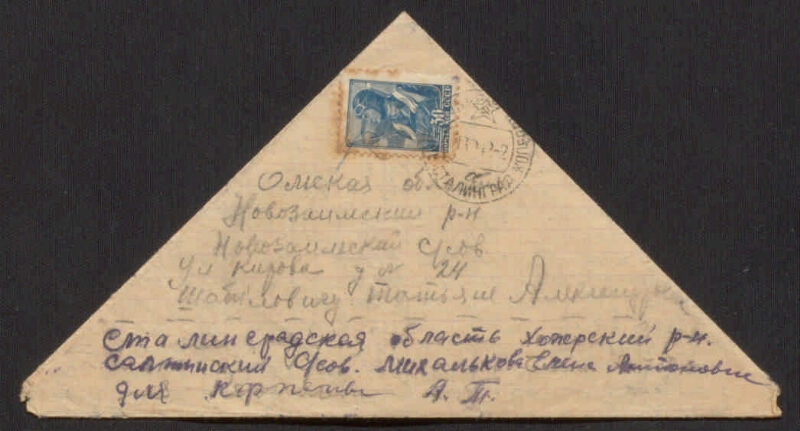 30
ПОЧТА СССР
СТАЛИНГРАД
Омская обл
Новозаимский р-н
Новозаимский с/сов
ул Кирова д № 24
Шабаловичу Татьяне
Сталинградская область Хоперский р-н.
с/сов. Михальково Елене Антоновне
для А. Т.